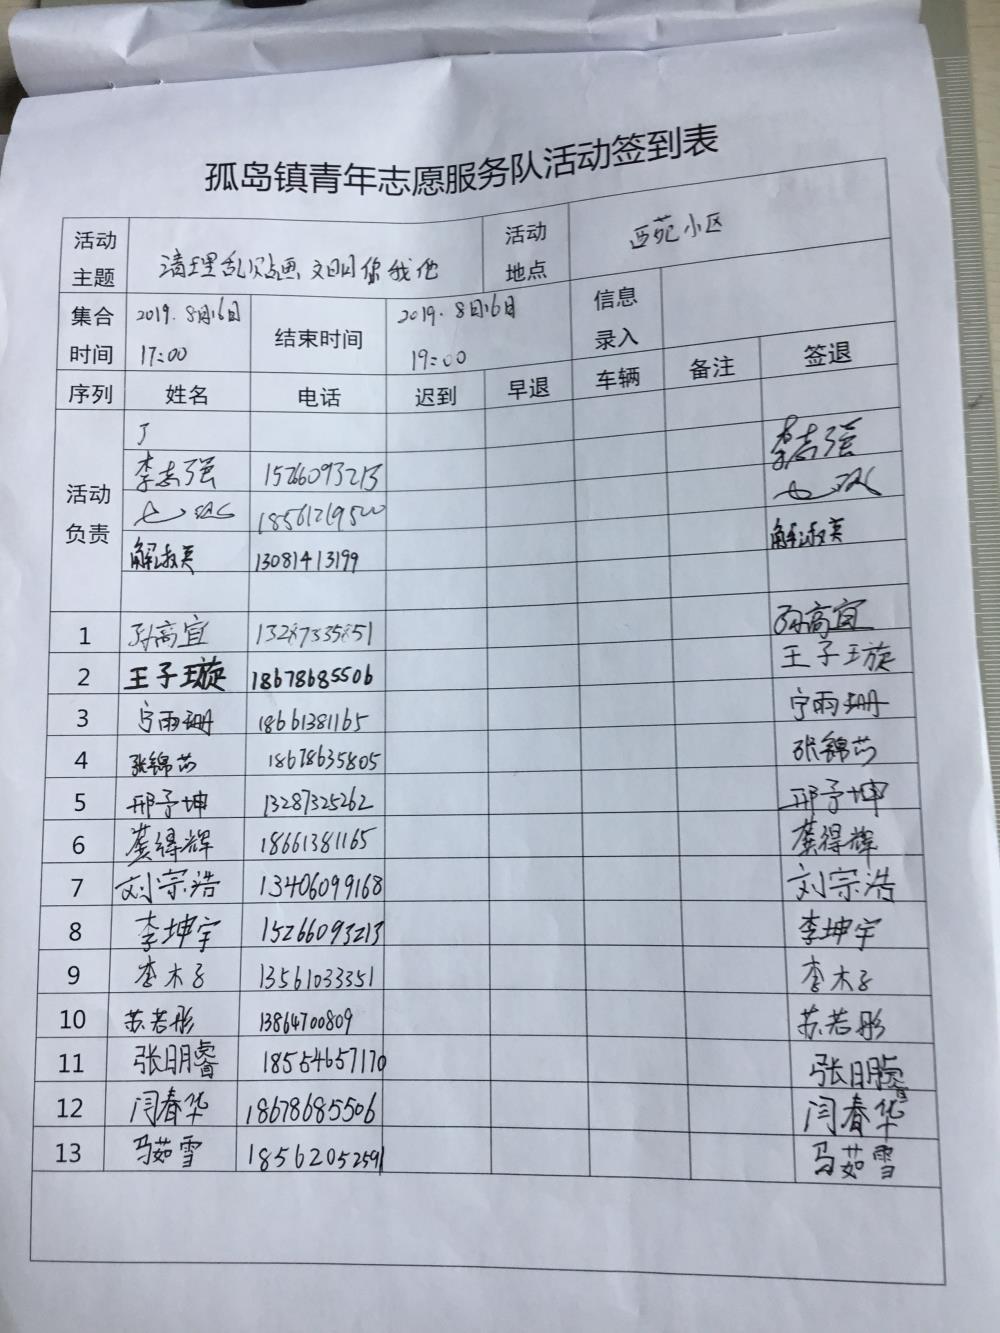 孤岛镇青年志愿服务队活动签到表
活动主题 清理乱贴画 文明你我他 活动地点 西苑小区
集合时间 2019.8月16日 17:00 结束时间 2019.8月16日 19:00 信息录入
序列 姓名 电话 迟到 早退 车辆 备注 签退
活动负责
李志强 15266093213 李志强
解淑英 13081413199 解淑英
1 孙高宜 孙高宜
2 王子璇 18678685506 王子璇
3 宁雨珊 18661381165 宁雨珊
4 张锦芯 18678635805 张锦芯
5 邢予坤 13287325262 邢予坤
6 龚得辉 18661381165 龚得辉
7 刘宗浩 13406099168 刘宗浩
8 李坤宇 15266093213 李坤宇
9 李木子 13561033351 李木子
10 苏若彤 13864700809 苏若彤
11 张明睿 18554657170 张明睿
12 闫春华 18678685506 闫春华
13 马茹雪 18562052591 马茹雪